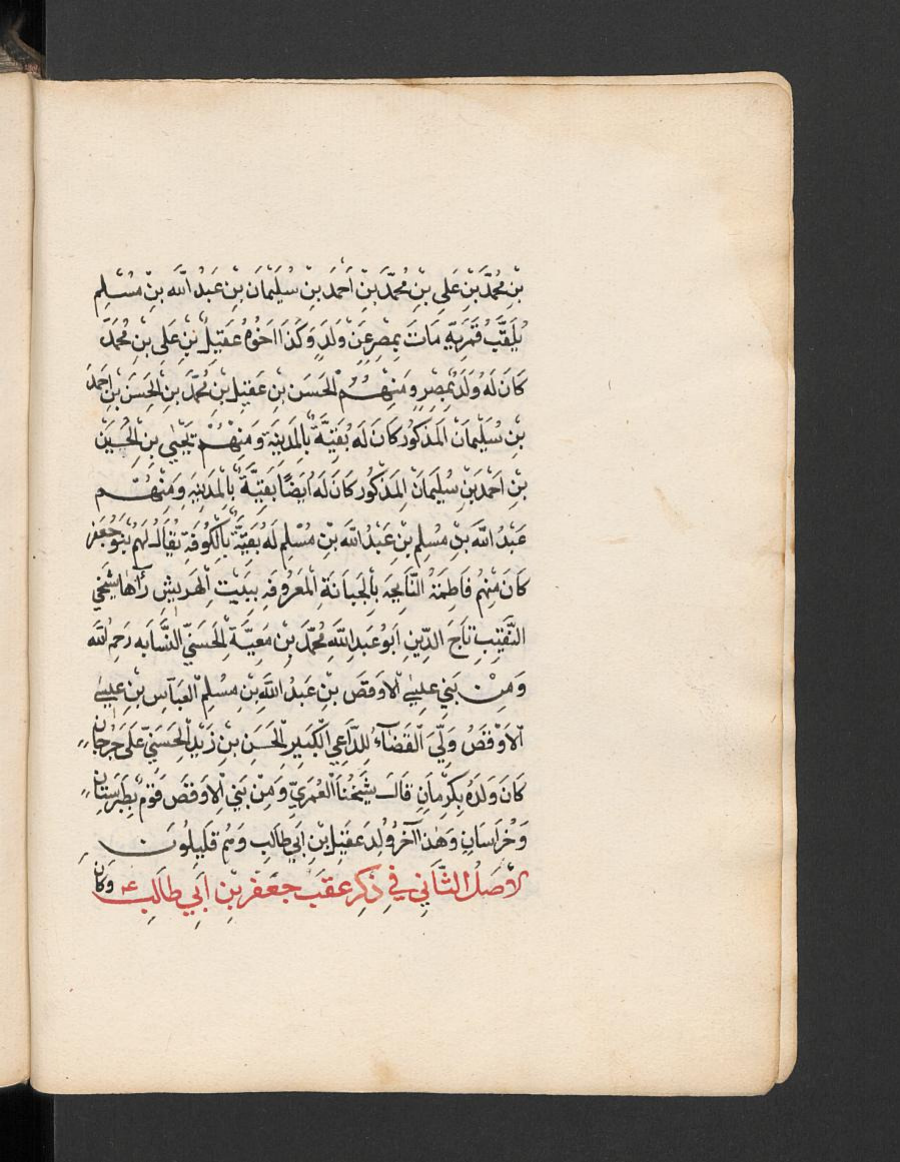 بن محمد بن علي بن محمد بن أحمد بن سليمان بن عبد الله بن مسلم
يلقب قمرية مات بمصر عن ولد وكذا اخوه عقيل بن علي بن محمد
كان له ولد بمصر ومنهم الحسن بن عقيل بن محمد بن الحسن بن احمد
بن سليمان المذكور كان له بقية بالمدينة ومنهم يحيى بن الحسين
بن احمد بن سليمان المذكور كان له ايضا بقية بالمدينة ومنهم
عبد الله بن مسلم بن عبد الله بن مسلم له بقية بالكوفة يقال لهم بنو جعفر
كان منهم فاطمة النائحة بالجبانة المعروفة ببيت الهريش رآها شيخي
النقيب تاج الدين ابو عبد الله محمد بن معية الحسني النسابه رحمه الله
ومن بني عيسى الاوقص بن عبد الله بن مسلم العباس بن عيسى
الاوقص ولي القضاء للداعي الكبير الحسن بن زيد الحسني على جرجان
كان ولده بكرمان قال شيخنا العمري ومن بني الاوقص قوم بطبرستان
وخراسان وهذا آخر ولد عقيل بن ابي طالب وهم قليلون
الاصل الثاني في ذكر عقب جعفر بن ابي طالب عم وكان